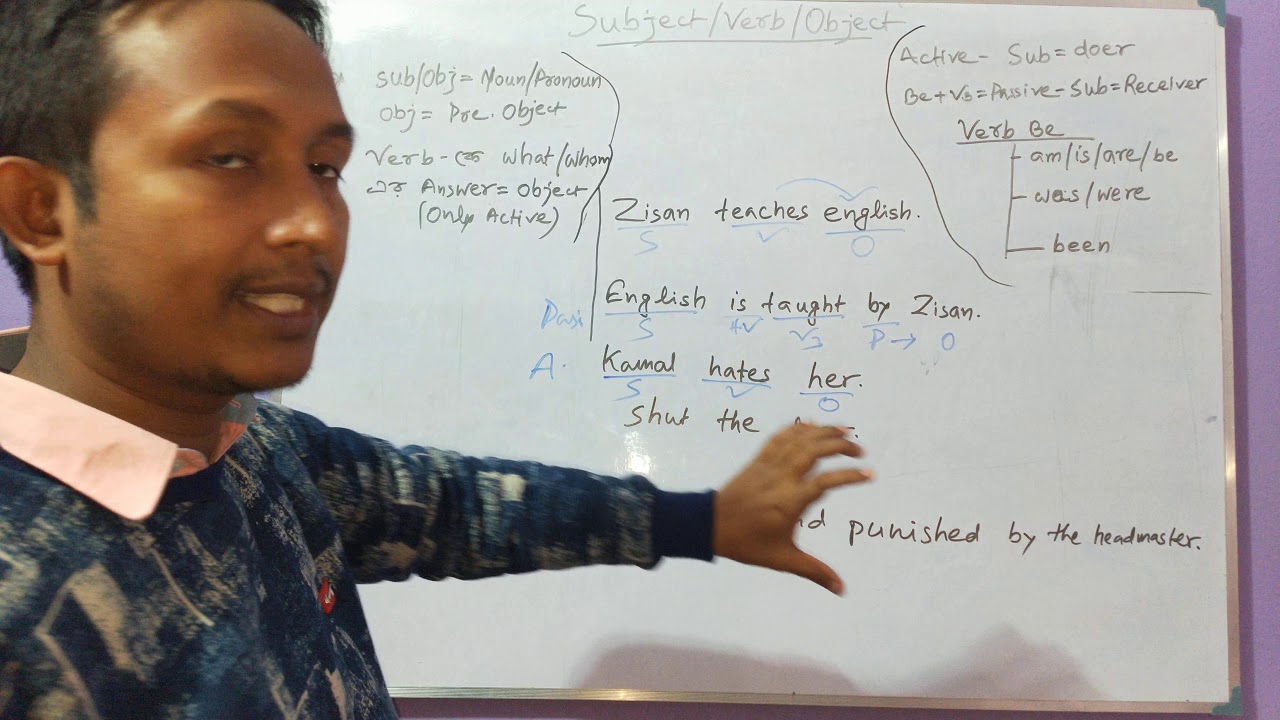 Subject/Verb/Object
Sub/Obj = Noun/Pronoun
Obj = Pre. Object
Verb - কে what/whom
এর Answer = Object
(Only Active)
Active - Sub = doer
Be + V3 = Passive - Sub = Receiver
Verb Be
am/is/are/be
was/were
been
Zisan teaches english.
S V O
English is taught by Zisan.
S HV V3 P → O
A. Kamal hates her.
S V O
Shut the
punished by the headmaster.